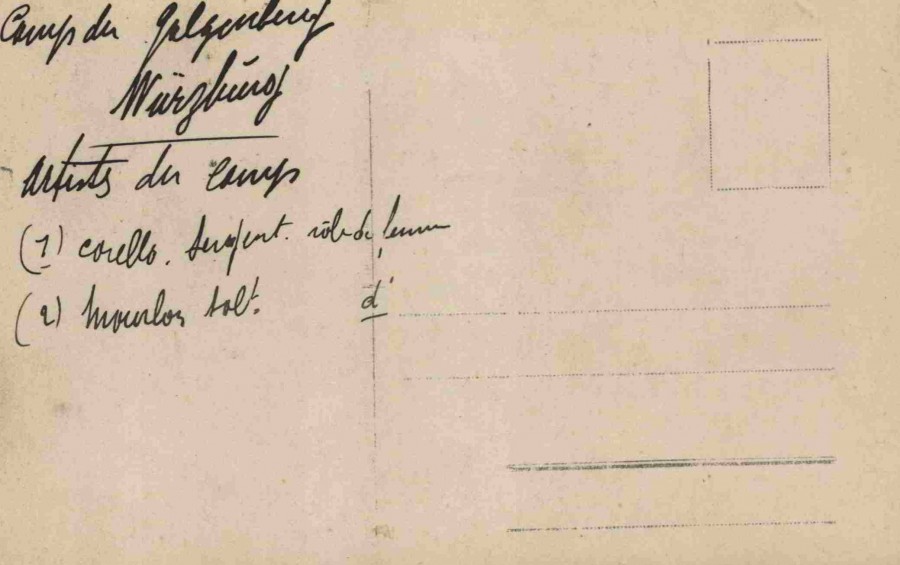 Camp du Galgenberg
Würzburg
Artistes du camp
(1) Corello. Sergent. rôle de femme
(2) Mourlon solt. d°